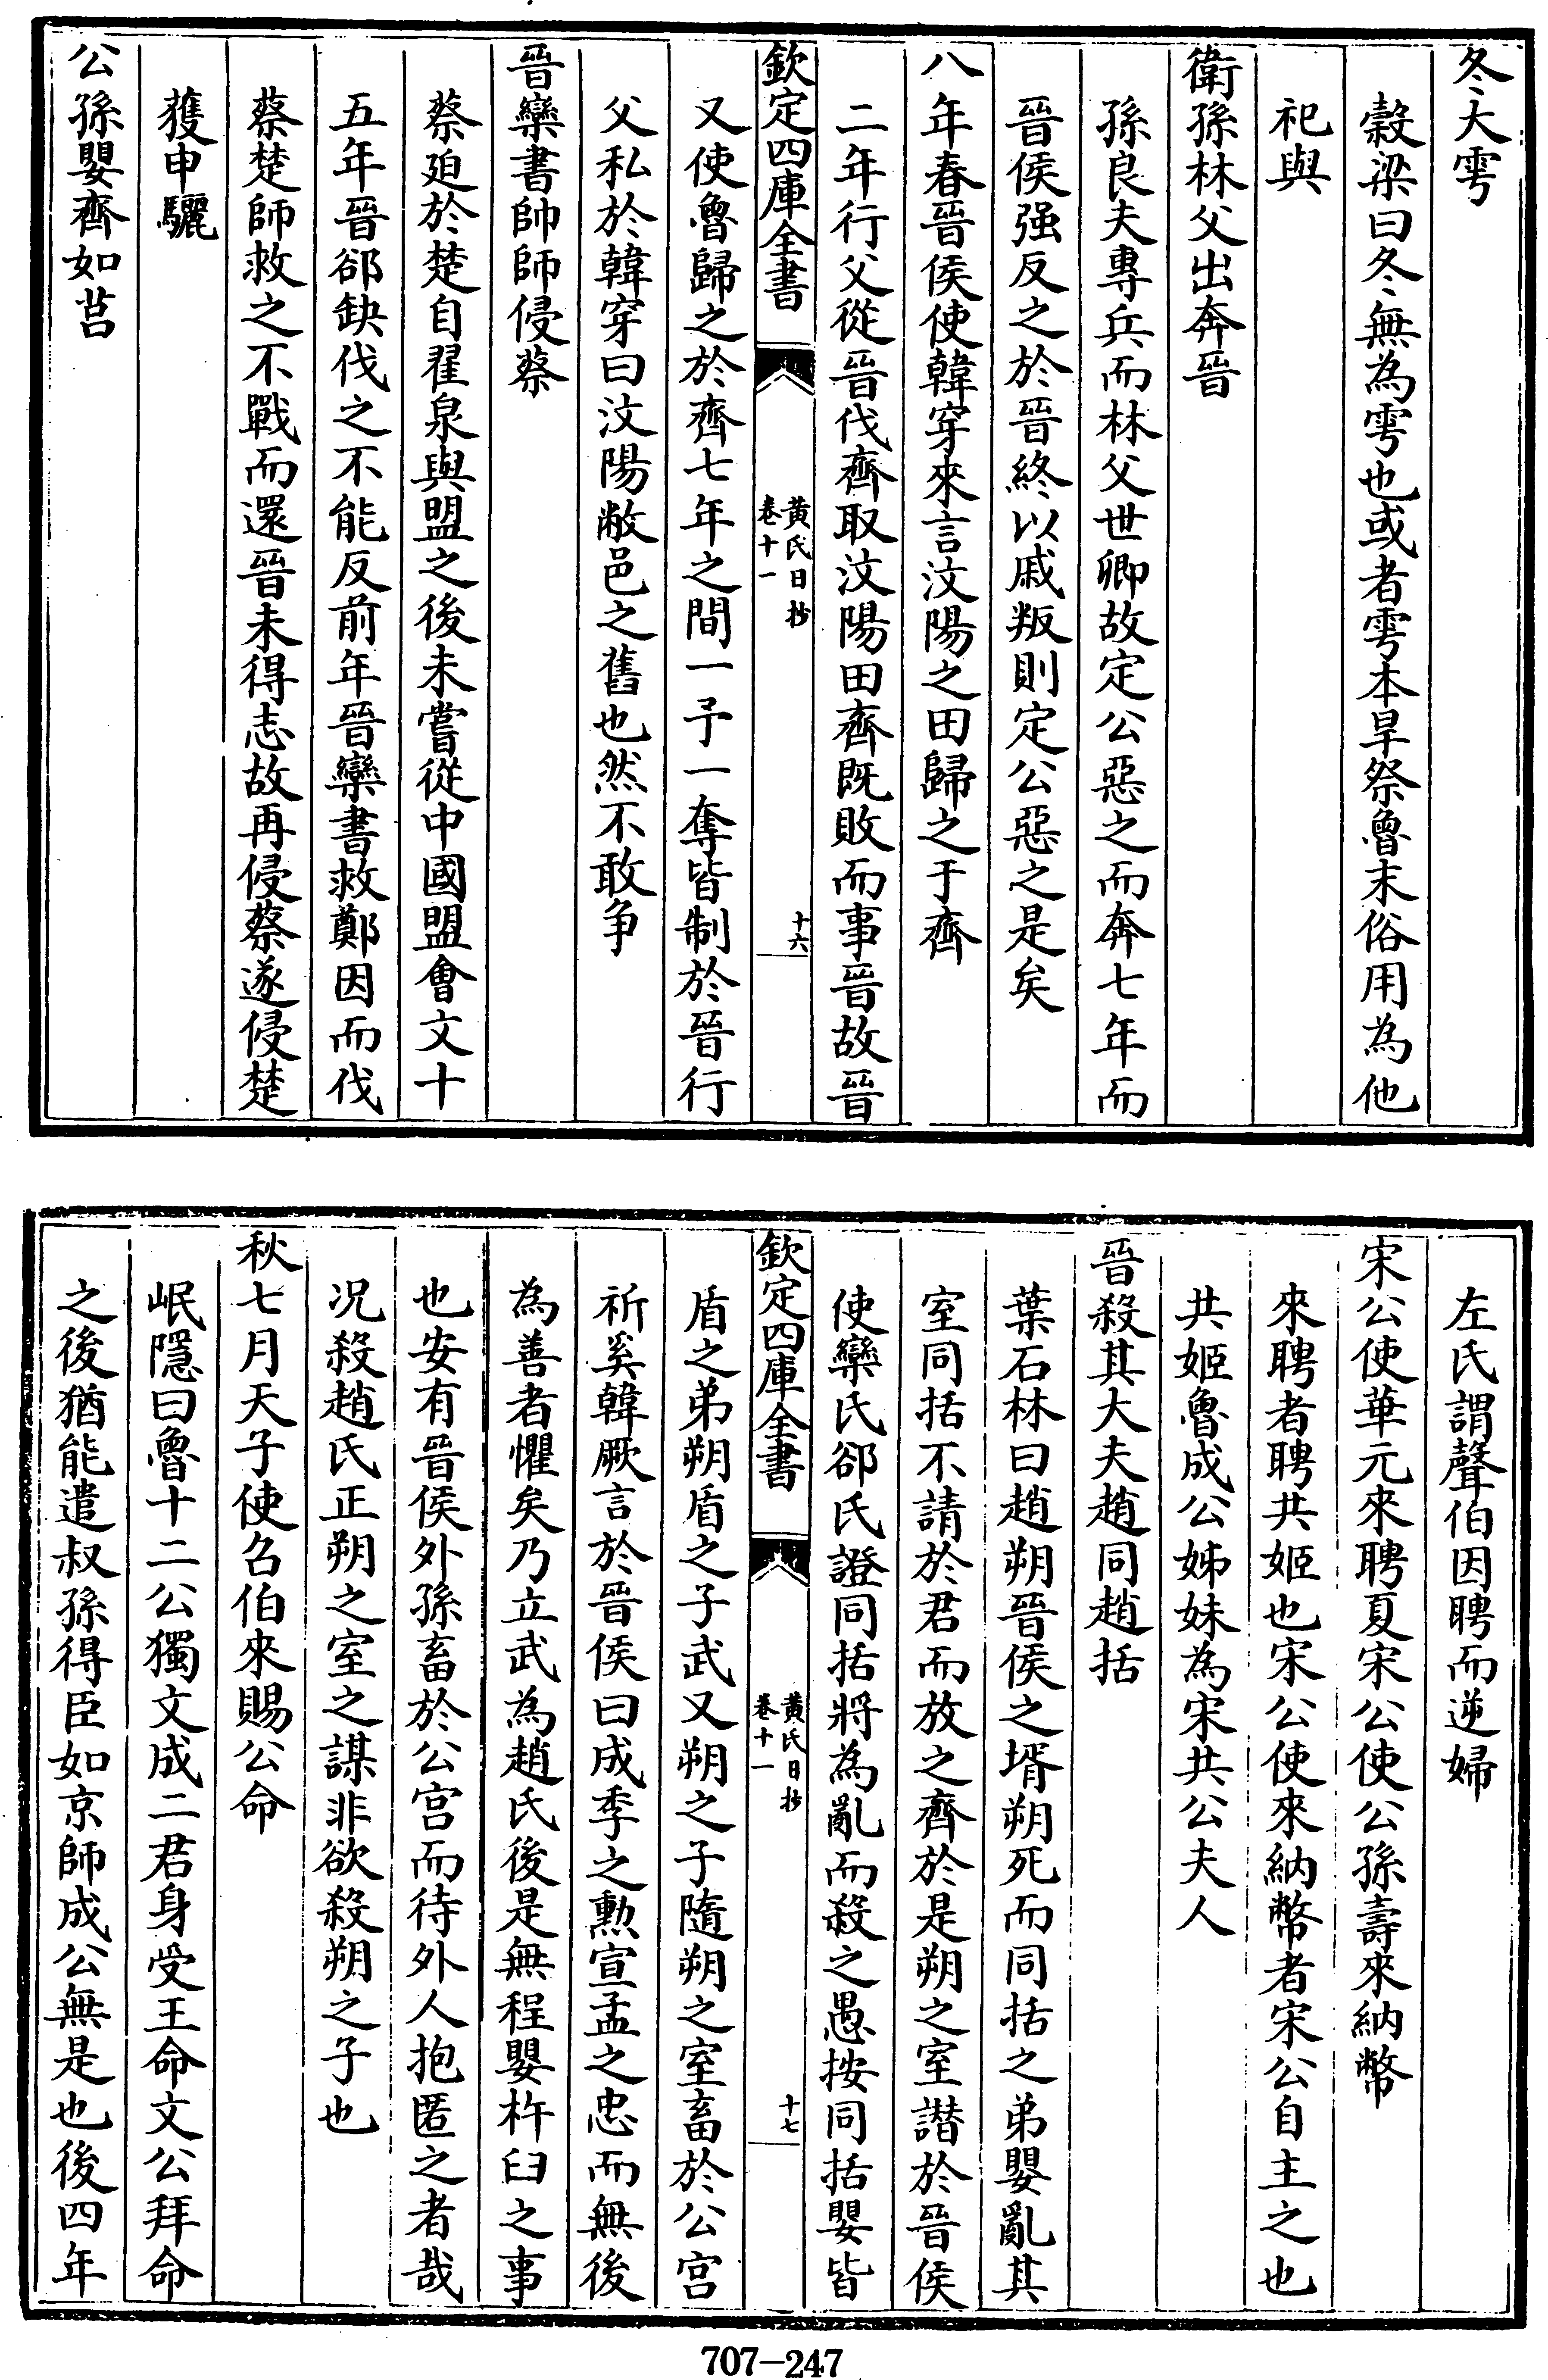 冬大雩
穀梁曰冬無為雩也或者雩本旱祭魯末俗用為他
祀與
衛孫林父出奔晉
孫良夫專兵而林父世卿故定公惡之而奔七年而
晉侯强反之於晉終以戚叛則定公惡之是矣
八年春晉侯使韓穿來言汶陽之田歸之于齊
二年行父從晉伐齊取汶陽田齊既敗而事晉故晉
欽定四庫全書
黃氏日抄
卷十一
十六
又使魯歸之於齊七年之間一予一奪皆制於晉行
父私於韓穿曰汶陽敝邑之舊也然不敢争
晉欒書帥師侵蔡
蔡廹於楚自翟泉與盟之後未嘗從中國盟會文十
五年晉郤缺伐之不能反前年晉欒書救鄭因而伐
蔡楚師救之不戰而還晉未得志故再侵蔡遂侵楚
獲申驪
公孫嬰齊如莒
左氏謂聲伯因聘而逆婦
宋公使華元來聘夏宋公使公孫壽來納幣
來聘者聘共姬也宋公使來納幣者宋公自主之也
共姬魯成公姊妹為宋共公夫人
晉殺其大夫趙同趙括
葉石林曰趙朔晉侯之壻朔死而同括之弟嬰亂其
室同括不請於君而放之齊於是朔之室譖於晉侯
使欒氏郤氏證同括將為亂而殺之愚按同括嬰皆
欽定四庫全書
黃氏日抄
卷十一
十七
盾之弟朔盾之子武又朔之子隨朔之室畜於公宮
祈奚韓厥言於晉侯曰成季之勲宣孟之忠而無後
為善者懼矣乃立武為趙氏後是無程嬰杵臼之事
也安有晉侯外孫畜於公宮而待外人抱匿之者哉
况殺趙氏正朔之室之謀非欲殺朔之子也
秋七月天子使召伯來賜公命
岷隱曰魯十二公獨文成二君身受王命文公拜命
之後猶能遣叔孫得臣如京師成公無是也後四年
707-247